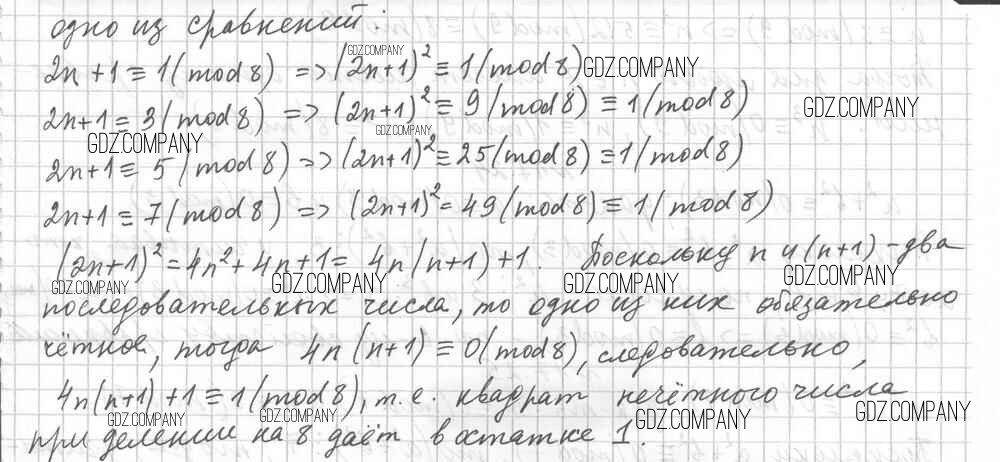 одно из сравнений:
2n+1 ≡ 1(mod 8) => (2n+1)² ≡ 1(mod 8)
2n+1 = 3(mod 8) => (2n+1)² ≡ 9(mod 8) ≡ 1(mod 8)
2n+1 ≡ 5(mod 8) => (2n+1)² ≡ 25(mod 8) ≡ 1(mod 8)
2n+1 ≡ 7(mod 8) => (2n+1)² = 49(mod 8) ≡ 1(mod 8)
(2n+1)² = 4n² + 4n + 1 = 4n(n+1) + 1. Поскольку n и (n+1) - два
последовательных числа, то одно из них обязательно
чётное, тогда 4n(n+1) ≡ 0(mod 8), следовательно,
4n(n+1) + 1 ≡ 1(mod 8), т.е. квадрат нечётного числа
при делении на 8 даёт в остатке 1.
GDZ.COMPANY
GDZ.COMPANY
GDZ.COMPANY
GDZ.COMPANY
GDZ.COMPANY
GDZ.COMPANY
GDZ.COMPANY
GDZ.COMPANY
GDZ.COMPANY
GDZ.COMPANY
GDZ.COMPANY
GDZ.COMPANY
GDZ.COMPANY